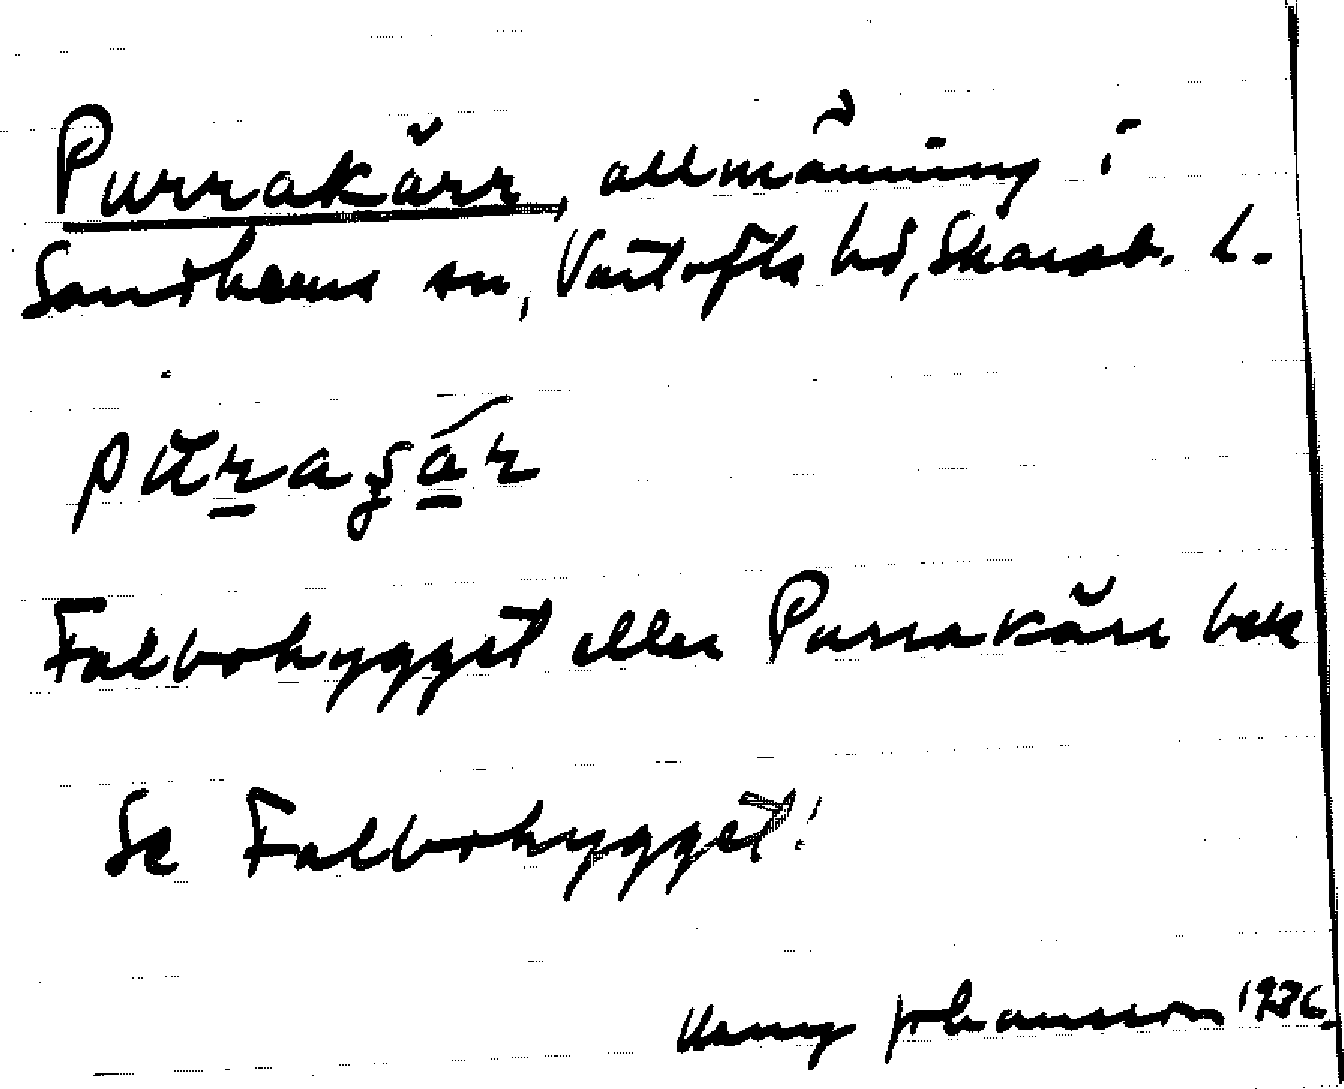 Purrakärr, allmänning i
Sandhems sn, Vartofta hd, Skarab. l.
Falbohygget eller Purrakärr bek
Se Falbohygget!
Johansson 1936.